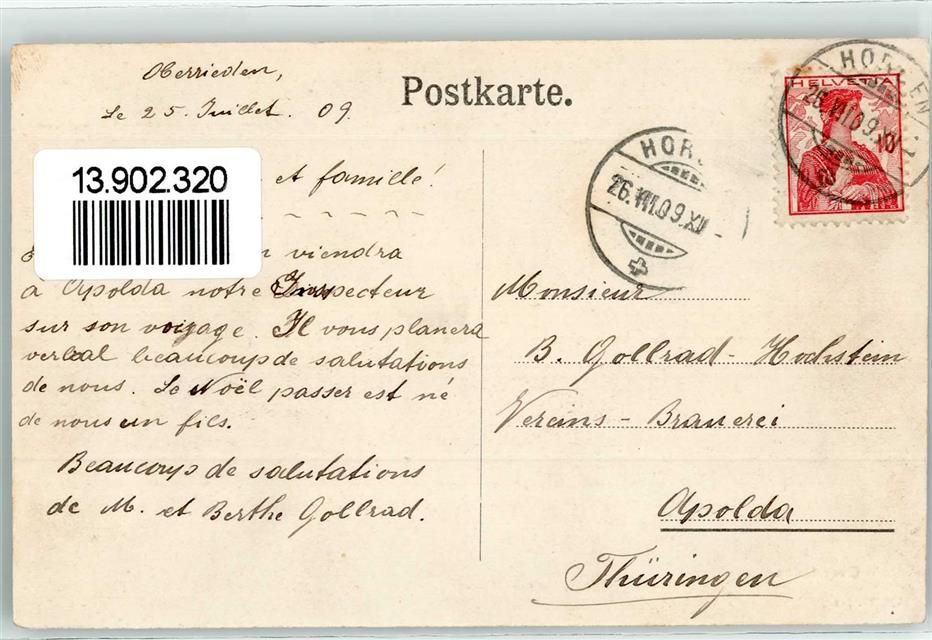 Oberrieden,
Le 25. Juillet. 09.
Postkarte.
HELVETIA
10
HORGEN
26.VII.09.XI
HOR
26.VII.09.XI
13.902.320
et famille!
viendra
à Apolda notre Inspecteur
sur son voyage. Il vous planera
verbal beaucoup de salutations
de nous. Le Noël passer est né
de nous un fils.
Beaucoup de salutations
de M. et Berthe Gollrad.
Monsieur
B. Gollrad-Hochstein
Vereins-Brauerei
Apolda
Thüringen